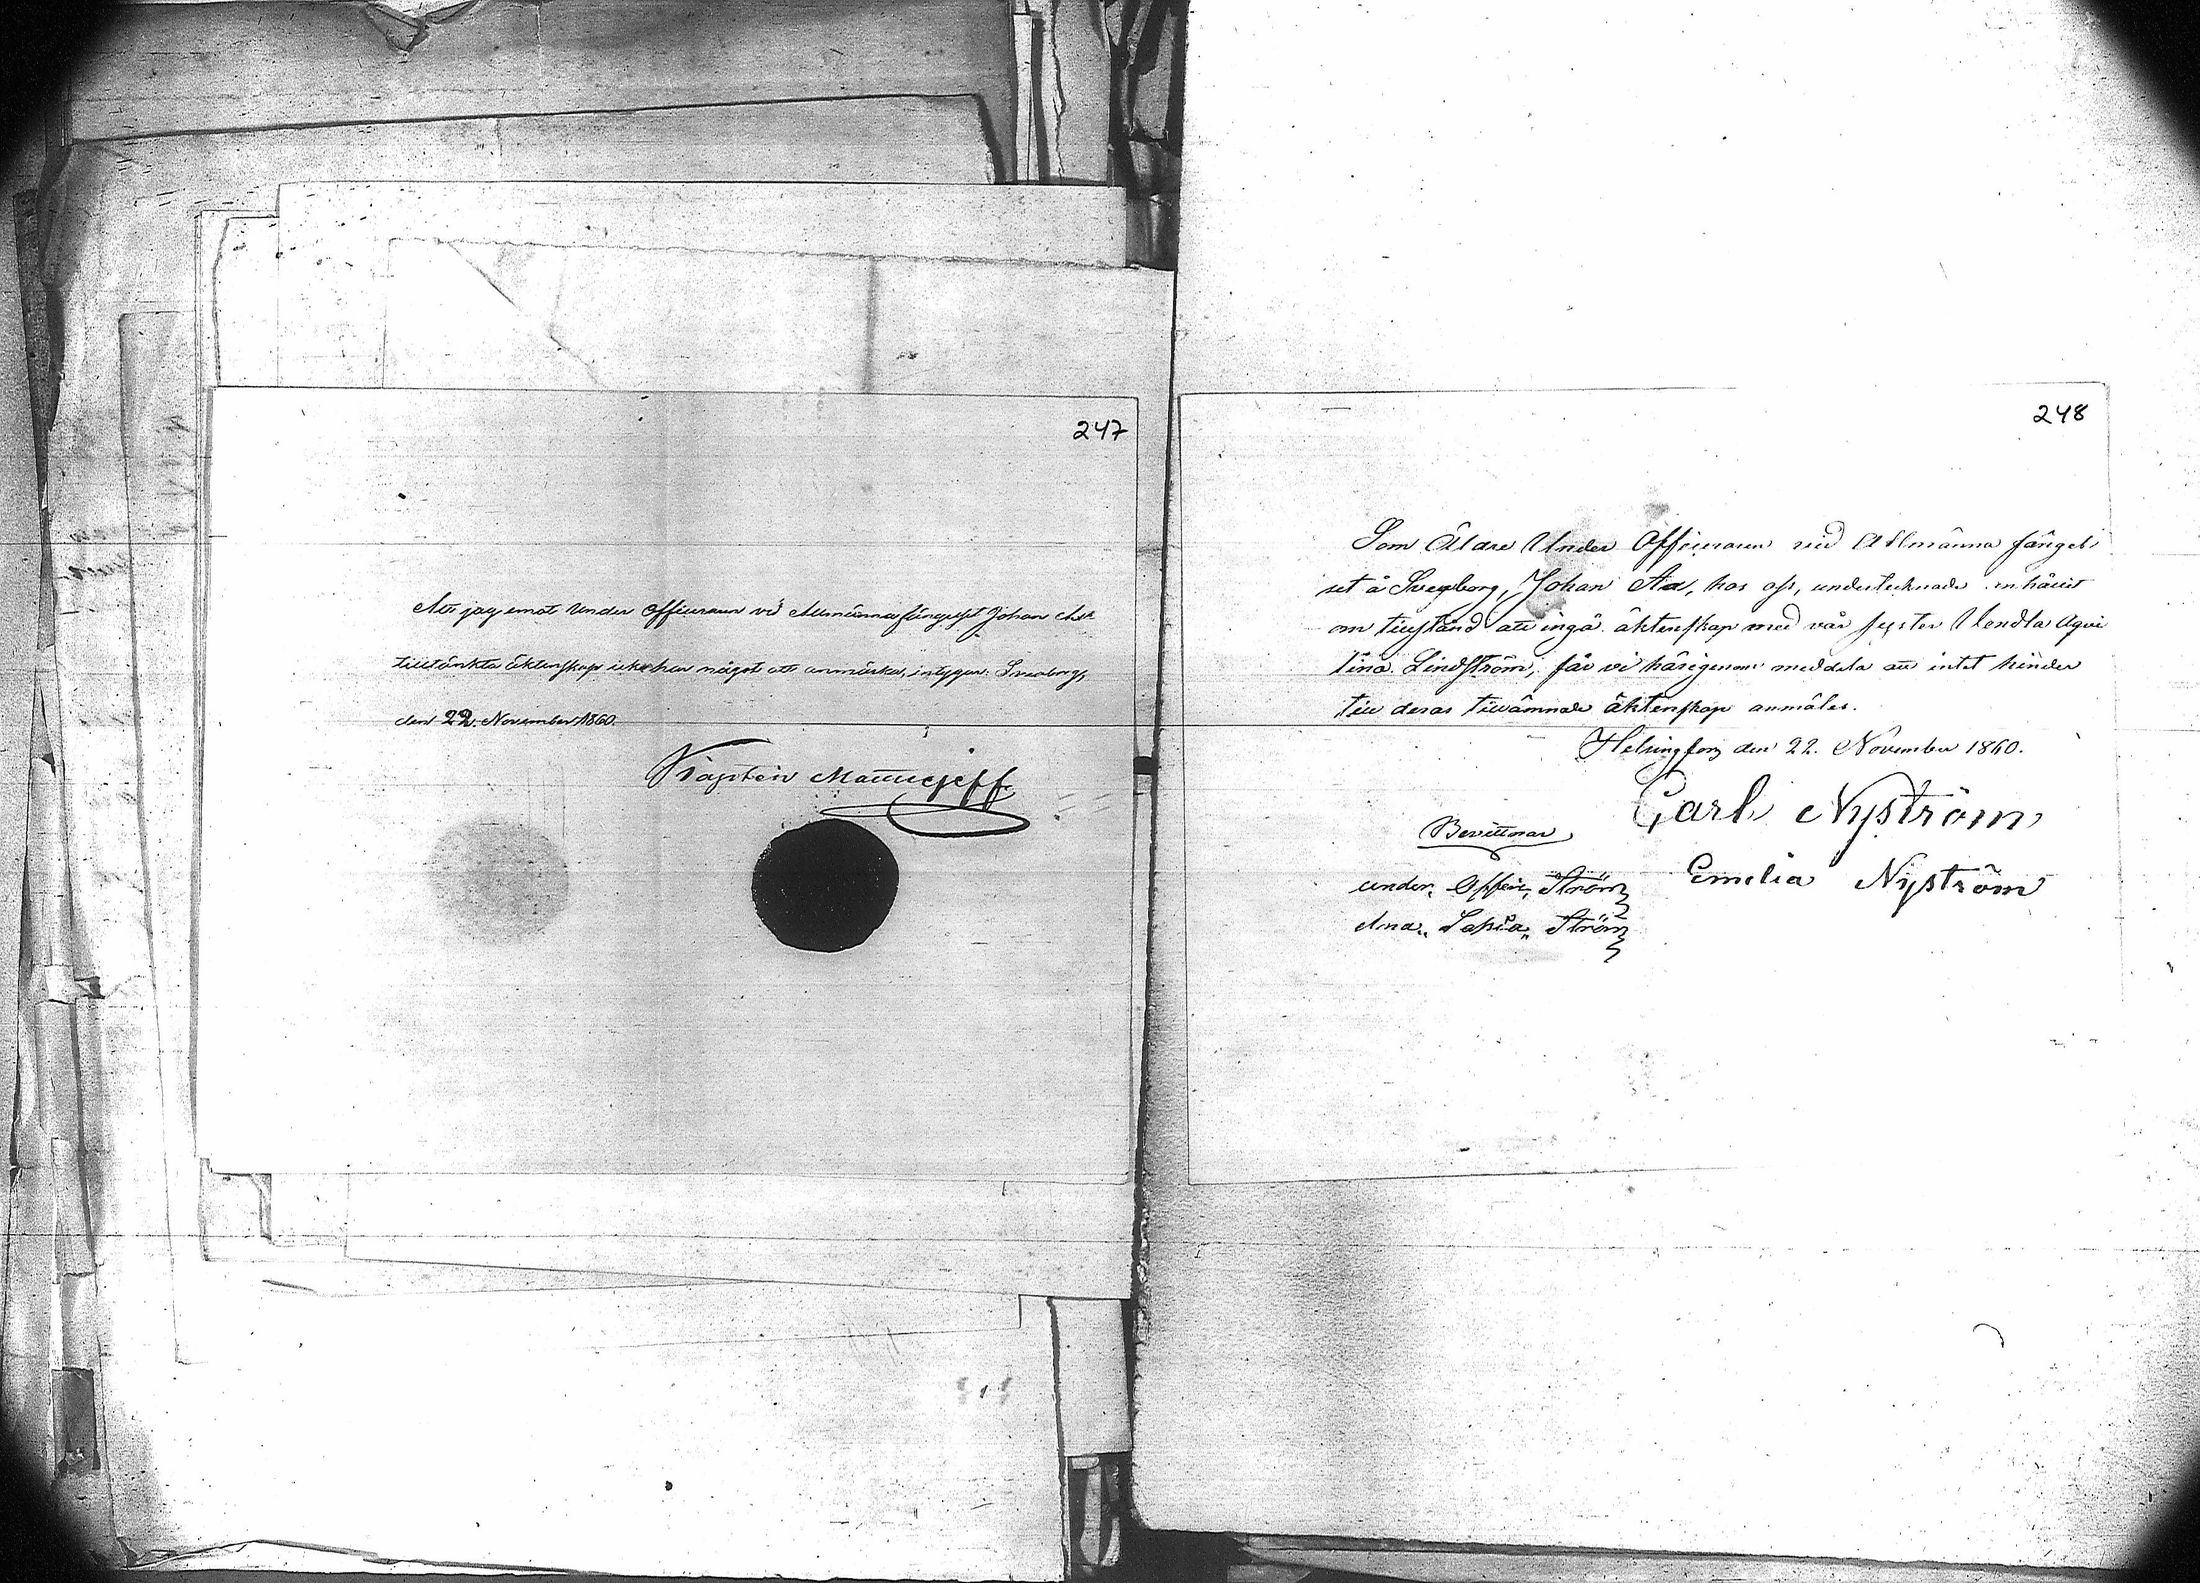 247
Att jag emot Under Officeraren vid Allmänna fängelset Johan Aa
tilltänkta äktenskap icke har något att anmärka, intygar. Sveaborg,
den 22. November 1860.
Kapten
248
Som Äldre Under Officeraren vid Allmänna fängel
set å Sveaborg, Johan Aa, hos oss, undertecknade anhållit
om tillstånd att ingå äktenskap med vår syster Vendla Aqvi
lina Lindström, får vi härigenom meddela att intet hinder
till deras tillämnade äktenskap anmäles.
Helsingfors den 22. November 1860.
Carl Nyström
Emelia Nyström
Bevittnar
under. Offic. Ström
Ana Sofia Ström